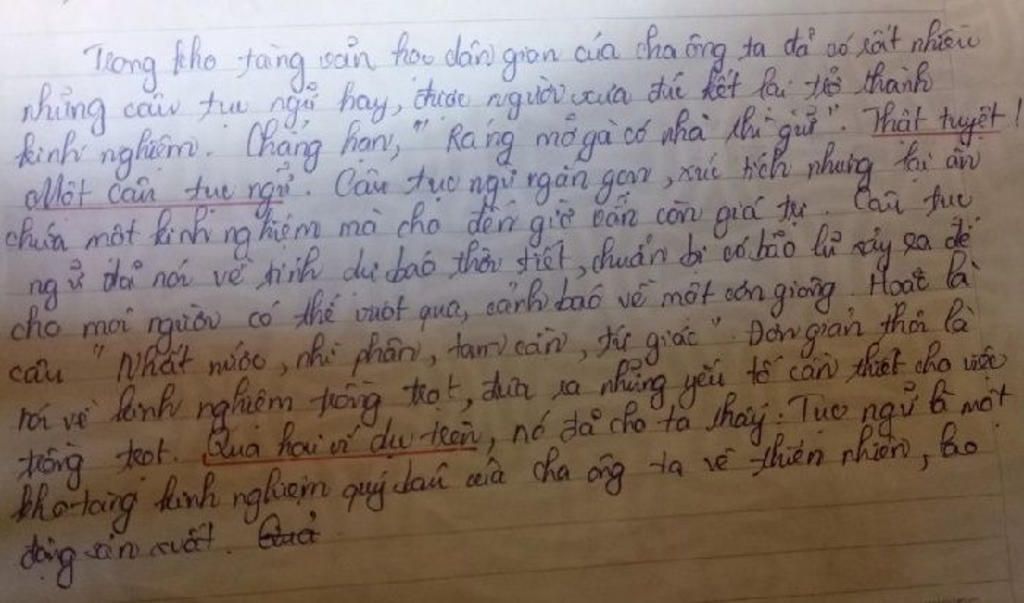 Trong kho tàng văn học dân gian của cha ông ta đã có rất nhiều
những câu tục ngữ hay, được người xưa đúc kết lại trở thành
kinh nghiệm. Chẳng hạn, "Ráng mỡ gà có nhà thì giữ". Thật tuyệt!
Một câu tục ngữ. Câu tục ngữ ngắn gọn, xúc tích nhưng lại ẩn
chứa một kinh nghiệm mà cho đến giờ vẫn còn giá trị. Câu tục
ngữ đã nói về tính dự báo thời tiết, chuẩn bị có bão lũ xảy ra để
cho mọi người có thể vượt qua, cảnh báo về một cơn giông. Hoặc là
câu "Nhất nước, nhì phân, tam cần, tứ giác". Đơn giản thôi là
nói về kinh nghiệm trồng trọt, đưa ra những yếu tố cần thiết cho việc
trồng trọt. Qua hai ví dụ trên, nó đã cho ta thấy: Tục ngữ là một
kho tàng kinh nghiệm quý báu của cha ông ta về thiên nhiên, lao
động sản xuất. Quả